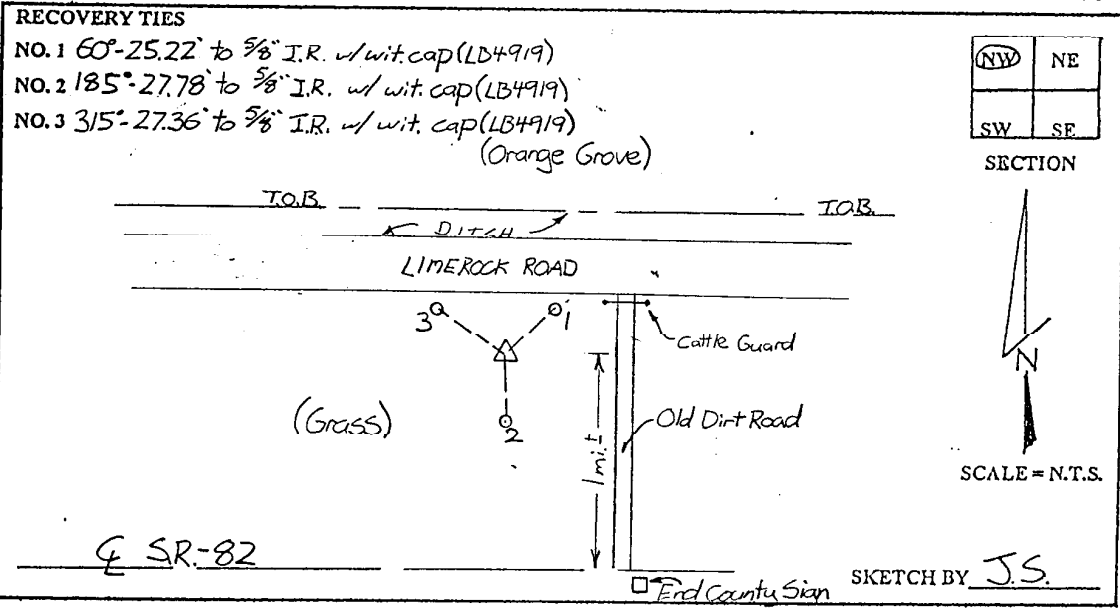 RECOVERY TIES
NO. 1 60°-25.22' to 5/8" I.R. w/ wit. cap (LB4919)
NO. 2 185°-27.78' to 5/8" I.R. w/ wit. cap (LB4919)
NO. 3 315°-27.36' to 5/8" I.R. w/ wit. cap (LB4919)
(Orange Grove)
NW NE
SW SE
SECTION
T.O.B. T.O.B.
DITCH
LIMEROCK ROAD
3 1
Cattle Guard
N
(Grass)
2
1mi.±
Old Dirt Road
SCALE = N.T.S.
℄ S.R.-82
End County Sign
SKETCH BY J.S.